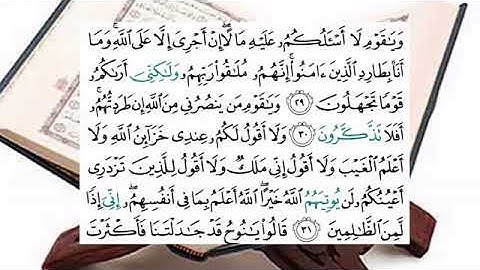 وَيَٰقَوْمِ لَا أَسْـَٔلُكُمُۥ عَلَيْهِ مَالًاۖ إِنْ أَجْرِيَ إِلَّا عَلَى ٱللَّهِۚ وَمَا
أَنَا۠ بِطَارِدِ ٱلَّذِينَ ءَامَنُوٓاْۚ إِنَّهُمُۥ مُلَٰقُواْ رَبِّهِمُۥ وَلَٰكِنِّيَ أَرَىٰكُمُۥ
قَوْمًا تَجْهَلُونَ ٢٩ وَيَٰقَوْمِ مَن يَنصُرُنِي مِنَ ٱللَّهِ إِن طَرَدتُّهُمُۥۚ
أَفَلَا تَذَّكَّرُونَ ٣٠ وَلَا أَقُولُ لَكُمُۥ عِندِي خَزَآئِنُ ٱللَّهِ وَلَا
أَعْلَمُ ٱلْغَيْبَ وَلَا أَقُولُ إِنِّي مَلَكٌ وَلَا أَقُولُ لِلَّذِينَ تَزْدَرِي
أَعْيُنُكُمُۥ لَن يُوتِيَهُمُ ٱللَّهُ خَيْرًاۖ ٱللَّهُ أَعْلَمُ بِمَا فِي أَنفُسِهِمُۥۖ إِنِّيَ إِذًا
لَّمِنَ ٱلظَّٰلِمِينَ ٣١ قَالُواْ يَٰنُوحُ قَدْ جَٰدَلْتَنَا فَأَكْثَرْتَ